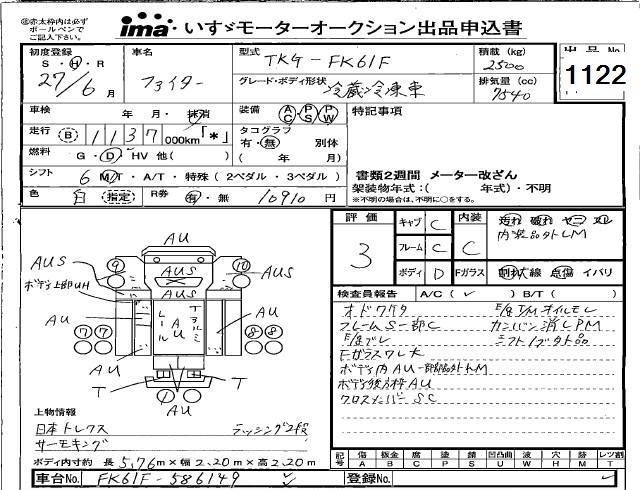 ㊟赤太枠内は必ず
ボールペンで
ご記入下さい。
ima いすゞモーターオークション出品申込書
初度登録
S・H・R
27/6 月
車名
ファイター
型式
TKG-FK61F
積載(kg)
2500
出品No
1122
グレード・ボディ形状
冷蔵冷凍車
排気量(cc)
7540
車検
年・月・抹消
装備
AC PS PW
特記事項
走行
B 1137 000km「*」
タコグラフ
有・無 別体
(年 月)
燃料
G・D・HV 他( )
シフト
6 M/T・A/T・特殊(2ペダル・3ペダル)
書類2週間 メーター改ざん
架装物年式:( 年式)・不明
※不明の場合は、不明に○をする。
色
白
指定
R券
有・無 10910 円
評価
3
キャブ C
フレーム C
ボディ D
内装
C
Fガラス
汚れ 破れ ヤニ スレ
内装品外しM
割れ大線 点傷 イバリ
検査員報告 A/C(✓) B/T( )
オドワクワ
フレームS一部C
Fガラスワレ大
ボディ内AU一部品外しM
ボディ後方枠AU
クロスメンバーSC
E/G T/Mオイルモレ
カンバン消しPM
シフトノブ欠品
AU
AUS
ボディ上部UH
⑨
AUS
AUS
⑩
AUS
AU
レール
AU
AU
⑦⑦
⑧⑧
AU
AU
T
AU
T
①
AU
上物情報
日本トレクス
サーモキング
ラッシング2段
ボディ内寸約 長 5.76m×幅 2.20m×高 2.20m
記号
傷 A
板金 B
腐 C
塗 P
錆 S
凹凸曲 U
波 W
穴 H
跡 M
レツ割 T
車台No. FK61F-586149 ✓
登録No. ✓